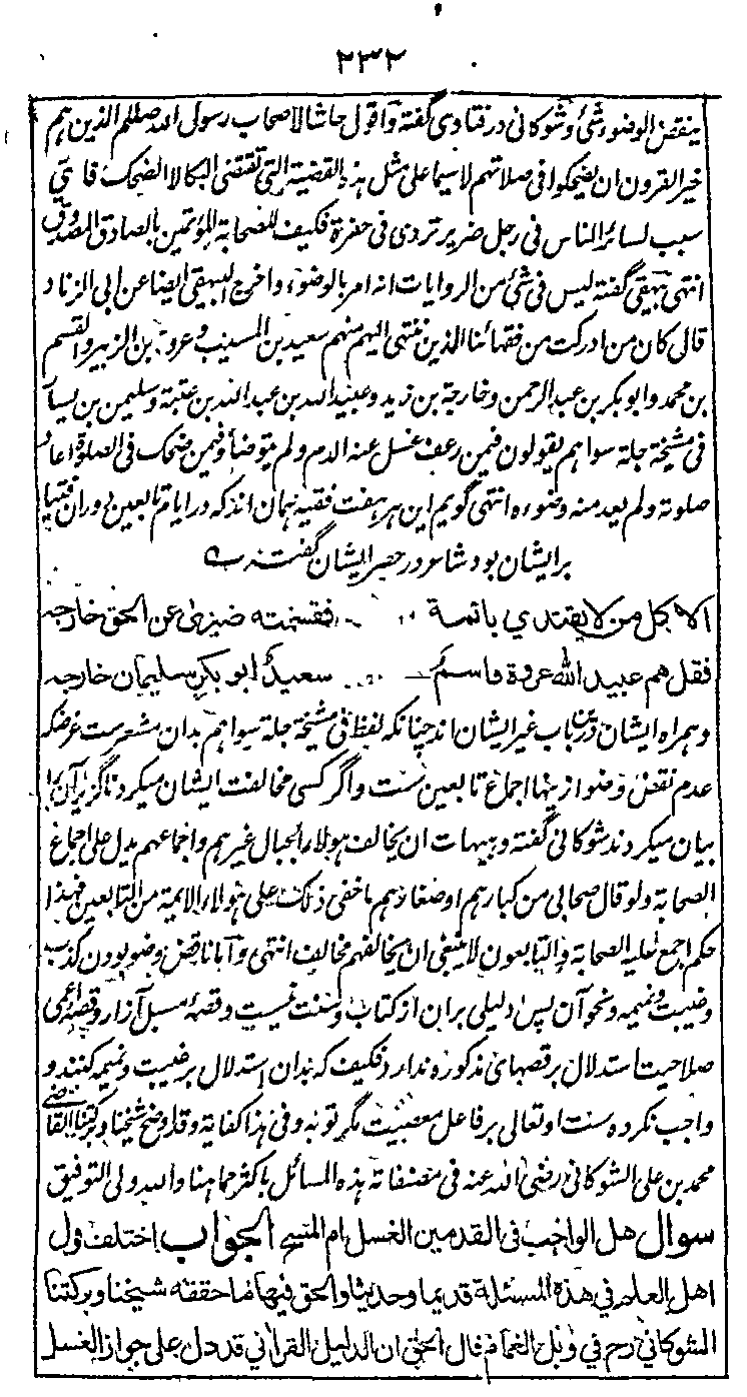 ۲۳۲
ینقض الوضوء شیء و شوکانی در فتاوی گفته و اقول حاشا لاصحاب رسول الله صللم الذین هم
خیر القرون ان یضحکوا فی صلاتهم لا سیما علی مثل هذه القضیة التی تقتضی البکا لا الضحک فای
سبب لسائر الناس فی رجل ضریر تردی فی حفرة فکیف للصحابة المؤتمین بالصادق المصدوق
انتهی بیهقی گفته لیس فی شئ من الروایات انه امر بالوضوء واخرج البیهقی ایضا عن ابی الزناد
قال کان من ادرکت من فقهائنا الذین ننتهی الیهم منهم سعید بن المسیب و عروة بن الزبیر والقسم
بن محمد و ابو بکر بن عبد الرحمن و خارجة بن زید و عبید الله بن عبد الله بن عتبة و سلیمن بن یسار
فی مشیخة جلة سواهم یقولون فیمن رعف غسل عنه الدم ولم یتوضأ و فیمن ضحک فی الصلوة اعاد
صلوته ولم یعد منه وضوءه انتهی گویم این هر هفت فقیه همان اند که در ایام تابعین دوران فتیا
بر ایشان بود شاعر در حصر ایشان گفته
الا کل من لا یقتدی بائمة فقسمته ضیزی عن الحق خارجه
فقل هم عبید الله عروة قاسم سعید ابو بکر سلیمان خارجه
و همراه ایشان درین باب غیر ایشان اند چنانکه لفظ فی مشیخة جلة سواهم بدان مشعرست غرضکه
عدم نقض وضو ازینها اجماع تابعین ست واگر کسی مخالفت ایشان میکرد ناگزیر آنرا
بیان میکردند شوکانی گفته و هیهات ان یخالف هولاء الجبال غیرهم واجماعهم یدل علی اجماع
الصحابة ولو قال صحابی من کبارهم او صغارهم ما خفی ذلک علی هولاء الایمة من التابعین فهذا
حکم اجمع علیه الصحابة والتابعون لا ینبغی ان یخالفهم مخالف انتهی و اما ناقض وضو بودن کذب
وغیبت و نمیمه و نحو آن پس دلیلی بران از کتاب و سنت نیست و قصهٔ مسبل آزار و قصهٔ اعمی
صلاحیت استدلال بر قصهای مذکوره ندارد فکیف که بدان استدلال بر غیبت و نمیمه کنند و
واجب نکرده ست او تعالی بر فاعل معصیت مگر توبه و فی هذا کفایة وقد اوضح شیخنا و برکتنا القاضی
محمد بن علی الشوکانی رضی الله عنه فی مصنفاته هذه المسائل باکثر مما هنا والله ولی التوفیق
سوال هل الواجب فی القدمین الغسل ام المسح الجواب اختلف قول
اهل العلم فی هذه المسئلة قدیما وحدیثا والحق فیها ما حققه شیخنا وبرکتنا
الشوکانی رح فی وبل الغمام قال الحق ان الدلیل القرانی قد دل علی جواز الغسل